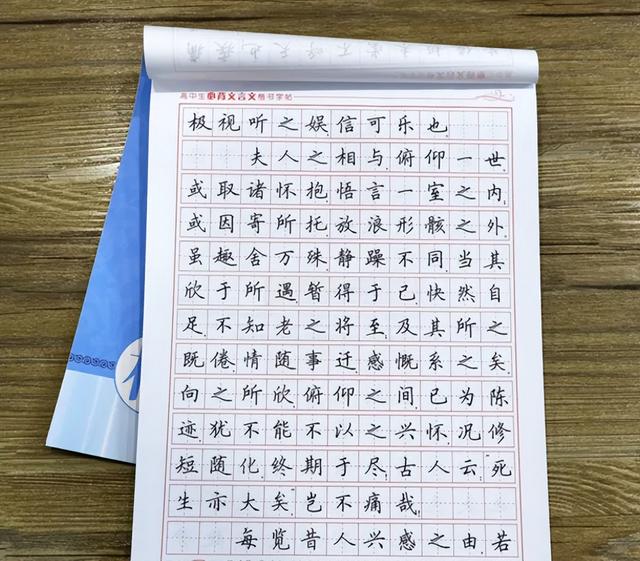 高中生必背文言文楷书字帖
极视听之娱，信可乐也。
夫人之相与，俯仰一世，
或取诸怀抱，悟言一室之内；
或因寄所托，放浪形骸之外。
虽趣舍万殊，静躁不同，当其
欣于所遇，暂得于己，快然自
足，不知老之将至。及其所之
既倦，情随事迁，感慨系之矣。
向之所欣，俯仰之间，已为陈
迹，犹不能不以之兴怀。况修
短随化，终期于尽。古人云：“死
生亦大矣。”岂不痛哉！
每览昔人兴感之由，若